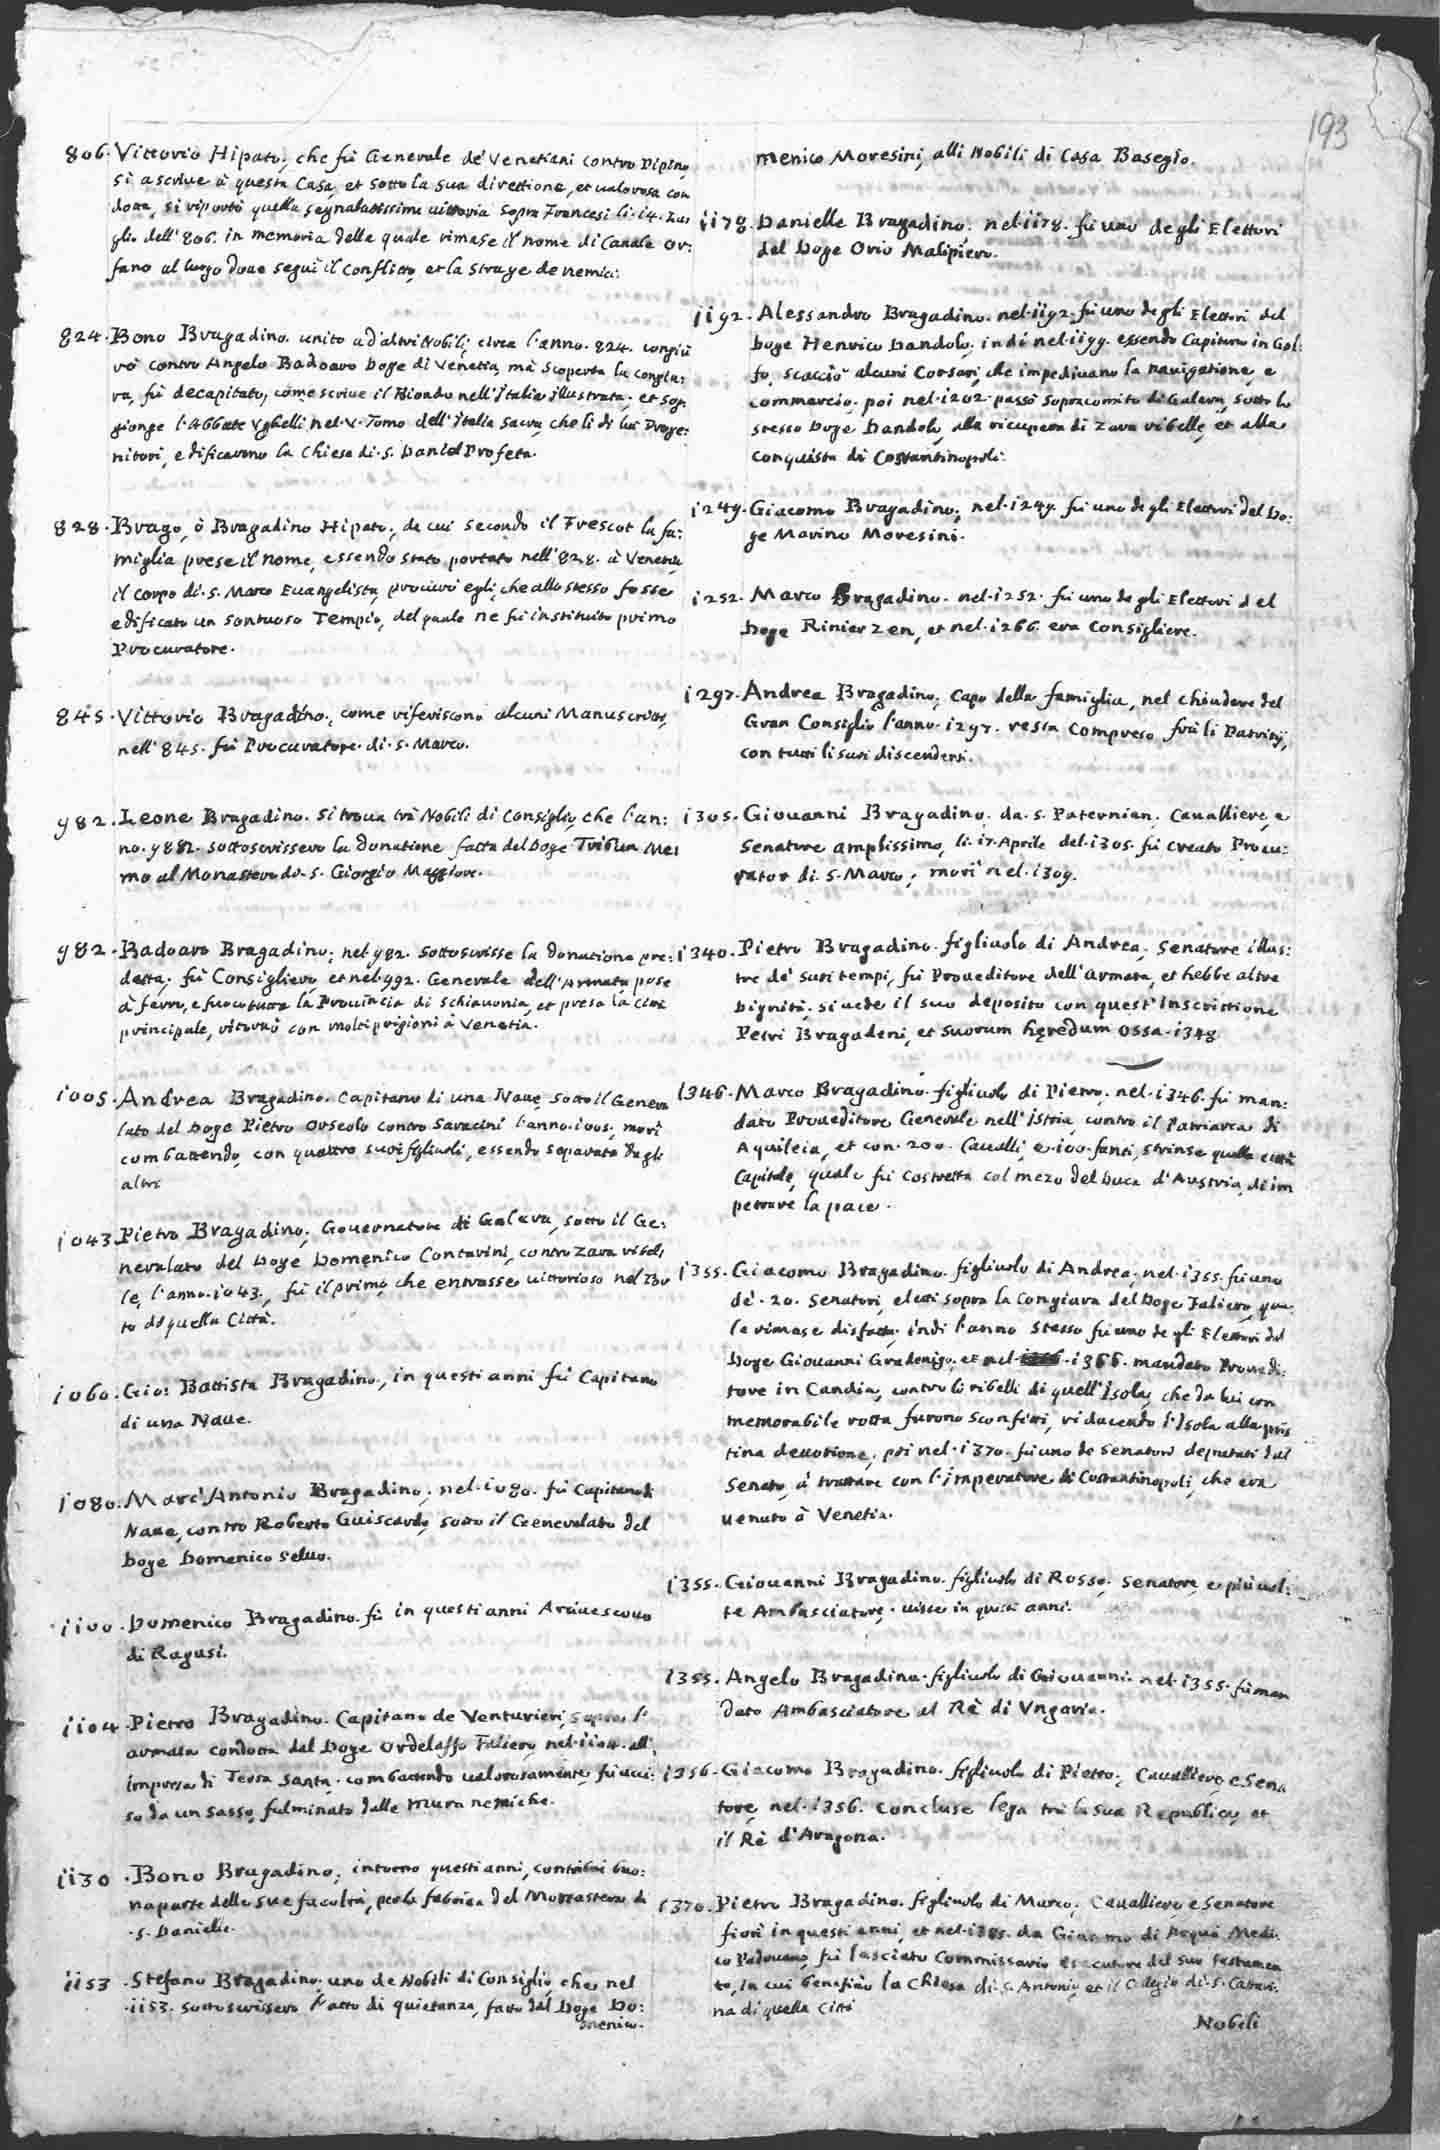 193
806. Vittorio Hipato, che fù Generale de' Venetiani contro Pipino,
si ascrive à questa Casa, et sotto la sua direttione, et ualorosa con
dotta, si riportò quella segnalatissima uittoria sopra Francesi li. 14. Lu:
glio dell' 806. in memoria della quale rimase il nome di Canale Or:
fano al luogo doue seguì il conflitto, et la strage de nemici.
824. Bono Bragadino. unito ad altri Nobili, circa l'anno. 824. congiu
rò contro Angelo Badoaro Doge di Venetia, mà scoperta la congiu:
ra, fù decapitato, come scriue il Biondo nell'Italia illustrata. et sog
gionge l'Abbate Vghelli nel. V. Tomo dell'Italia Sacra, che li di lui Proge:
nitori, edificarono la Chiesa di. S. Daniel Profeta.
828. Brago, ò Bragadino Hipato, da cui secondo il Frescot la fa:
miglia prese il nome, essendo stato portato nell'828. à Venetia,
il corpo di. S. Marco Euangelista, procurò egli, che allo stesso fosse
edificato un sontuoso Tempio, del quale ne fù instituito primo
Procuratore.
845. Vittorio Bragadino, come riferiscono alcuni Manuscritti,
nell' 845. fù Procuratore. di. S. Marco.
982. Leone Bragadino. si troua trà Nobili di Consiglio, che l'an:
no. 982. sottoscrissero la donatione fatta del Doge Tribun Me:
mo al Monastero di. S. Giorgio Maggiore.
982. Badoaro Bragadino, nel 982. sottoscrisse la donatione pre:
detta. fù Consigliero, et nel 992. Generale dell'Armata pose
à ferro, e fuoco tutta la Prouincia di Schiauonia, et presa la Città
principale, ritornò con molti prigioni à Venetia.
1005. Andrea Bragadino. Capitano di una Naue, sotto il Genera
lato del Doge Pietro Orseolo contro Saracini l'anno. 1005. morì
combattendo, con quattro suoi figliuoli, essendo separato dagli
altri
1043. Pietro Bragadino, Gouernatore di Galera, sotto il Ge:
neralato del Doge Domenico Contarini, contro Zara ribel:
le, l'anno. 1043., fù il primo, che entrasse uittorioso nel Por
to di quella Città.
1060. Gio: Battista Bragadino, in questi anni fù Capitano
di una Naue.
1080. Marc'Antonio Bragadino, nel. 1080. fù Capitano di
Naue, contro Roberto Guiscardo, sotto il Generalato del
Doge Domenico Seluo.
1100. Domenico Bragadino. fù in questi anni Arciuescouo
di Ragusi.
1104. Pietro Bragadino. Capitano de Venturieri, sopra l'
armata condotta dal Doge Ordelaffo Faliero, nel. 1104. all'
impresa di Terra Santa. combattendo ualorosamente, fù ucci:
so da un sasso, fulminato dalle mura nemiche.
1130. Bono Bragadino, intorno questi anni, contribuì buo:
na parte delle sue facoltà, per la fabrica del Monastero di
. S. Daniele.
1153. Stefano Bragadino. uno de Nobili di Consiglio, che nel
. 1153. sottoscrissero l'atto di quietanza, fatto dal Doge Do:
menico.
menico Moresini, alli Nobili di Casa Basegio.
1178. Danielle Bragadino, nel. 1178. fù uno degli Elettori
del Doge Orio Malipiero.
1192. Alessandro Bragadino. nel. 1192. fù uno degli Elettori del
Doge Henrico Dandolo, indi nel. 1199. essendo Capitano in Gol:
fo, scacciò alcuni Corsari, che impediuano la nauigatione, e
commercio. poi nel. 1202. passò sopracomito di Galera, sotto lo
stesso Doge Dandolo, alla ricupera di Zara ribelle, et alla
conquista di Costantinopoli.
1249. Giacomo Bragadino, nel. 1249. fù uno degli Elettori del Do:
ge Marino Moresini.
1252. Marco Bragadino. nel. 1252. fù uno degli Elettori del
Doge Rinier Zen, et nel. 1266. era Consigliere.
1297. Andrea Bragadino, Capo della famiglia, nel chiudere del
Gran Consiglio l'anno. 1297. resta compreso frà li Patritij,
con tutti li suoi discendenti.
1305. Giouanni Bragadino. da. S. Paternian. Caualliere, e
Senatore amplissimo, li. 17. Aprile del. 1305. fù creato Procu:
rator di. S. Marco, morì nel. 1309.
1340. Pietro Bragadino. figliuolo di Andrea, Senatore illus:
tre de' suoi tempi, fù Proueditore dell'armata, et hebbe altre
Dignità. si uede il suo deposito con quest'Inscrittione
Petri Bragadeni, et suorum hęredum ossa. 1348
1346. Marco Bragadino. figliuolo di Pietro, nel. 1346. fù man:
dato Proueditore Generale nell'Istria, contro il Patriarca di
Aquileia, et con. 200. Caualli, e. 100. fanti, strinse quella città
Capitale, quale fù costretta col mezo del Duca d'Austria, di im
petrare la pace.
1355. Giacomo Bragadino. figliuolo di Andrea, nel. 1355. fù uno
de'. 20. Senatori, eletti sopra la Congiura del Doge Faliero, qua:
le rimase disfatta. indi l'anno stesso fù uno degli Elettori del
Doge Giouanni Gradenigo, et nel. 1366. mandato Prouedi:
tore in Candia, contro li ribelli di quell'Isola, che da lui con
memorabile rotta furono sconfitti, riducendo l'Isola alla pris
tina deuotione. poi nel. 1370. fù uno de Senatori deputati dal
Senato, à trattare con l'Imperatore di Costantinopoli, che era
uenuto à Venetia.
1355. Giouanni Bragadino. figliuolo di Rosso, Senatore, e più uol:
te Ambasciatore. uisse in questi anni.
1355. Angelo Bragadino. figliuolo di Giouanni. nel. 1355. fù man
dato Ambasciatore al Rè di Vngaria.
1356. Giacomo Bragadino. figliuolo di Pietro, Caualliere, e Sena
tore, nel. 1356. concluse lega trà la sua Republica, et
il Rè d'Aragona.
1370. Pietro Bragadino. figliuolo di Marco, Caualliere, e Senatore
fiorì in questi anni, et nel. da Giacomo di Medi:
co Padouano, fù lasciato Commissario esecutore del suo testamen
to, in cui beneficò la Chiesa di. S. Antonio, et il Collegio di. S. Catari:
na di quella Città
Nobili